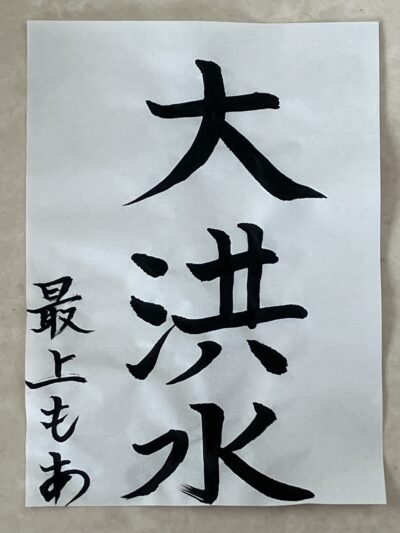 大洪水
最上もあ